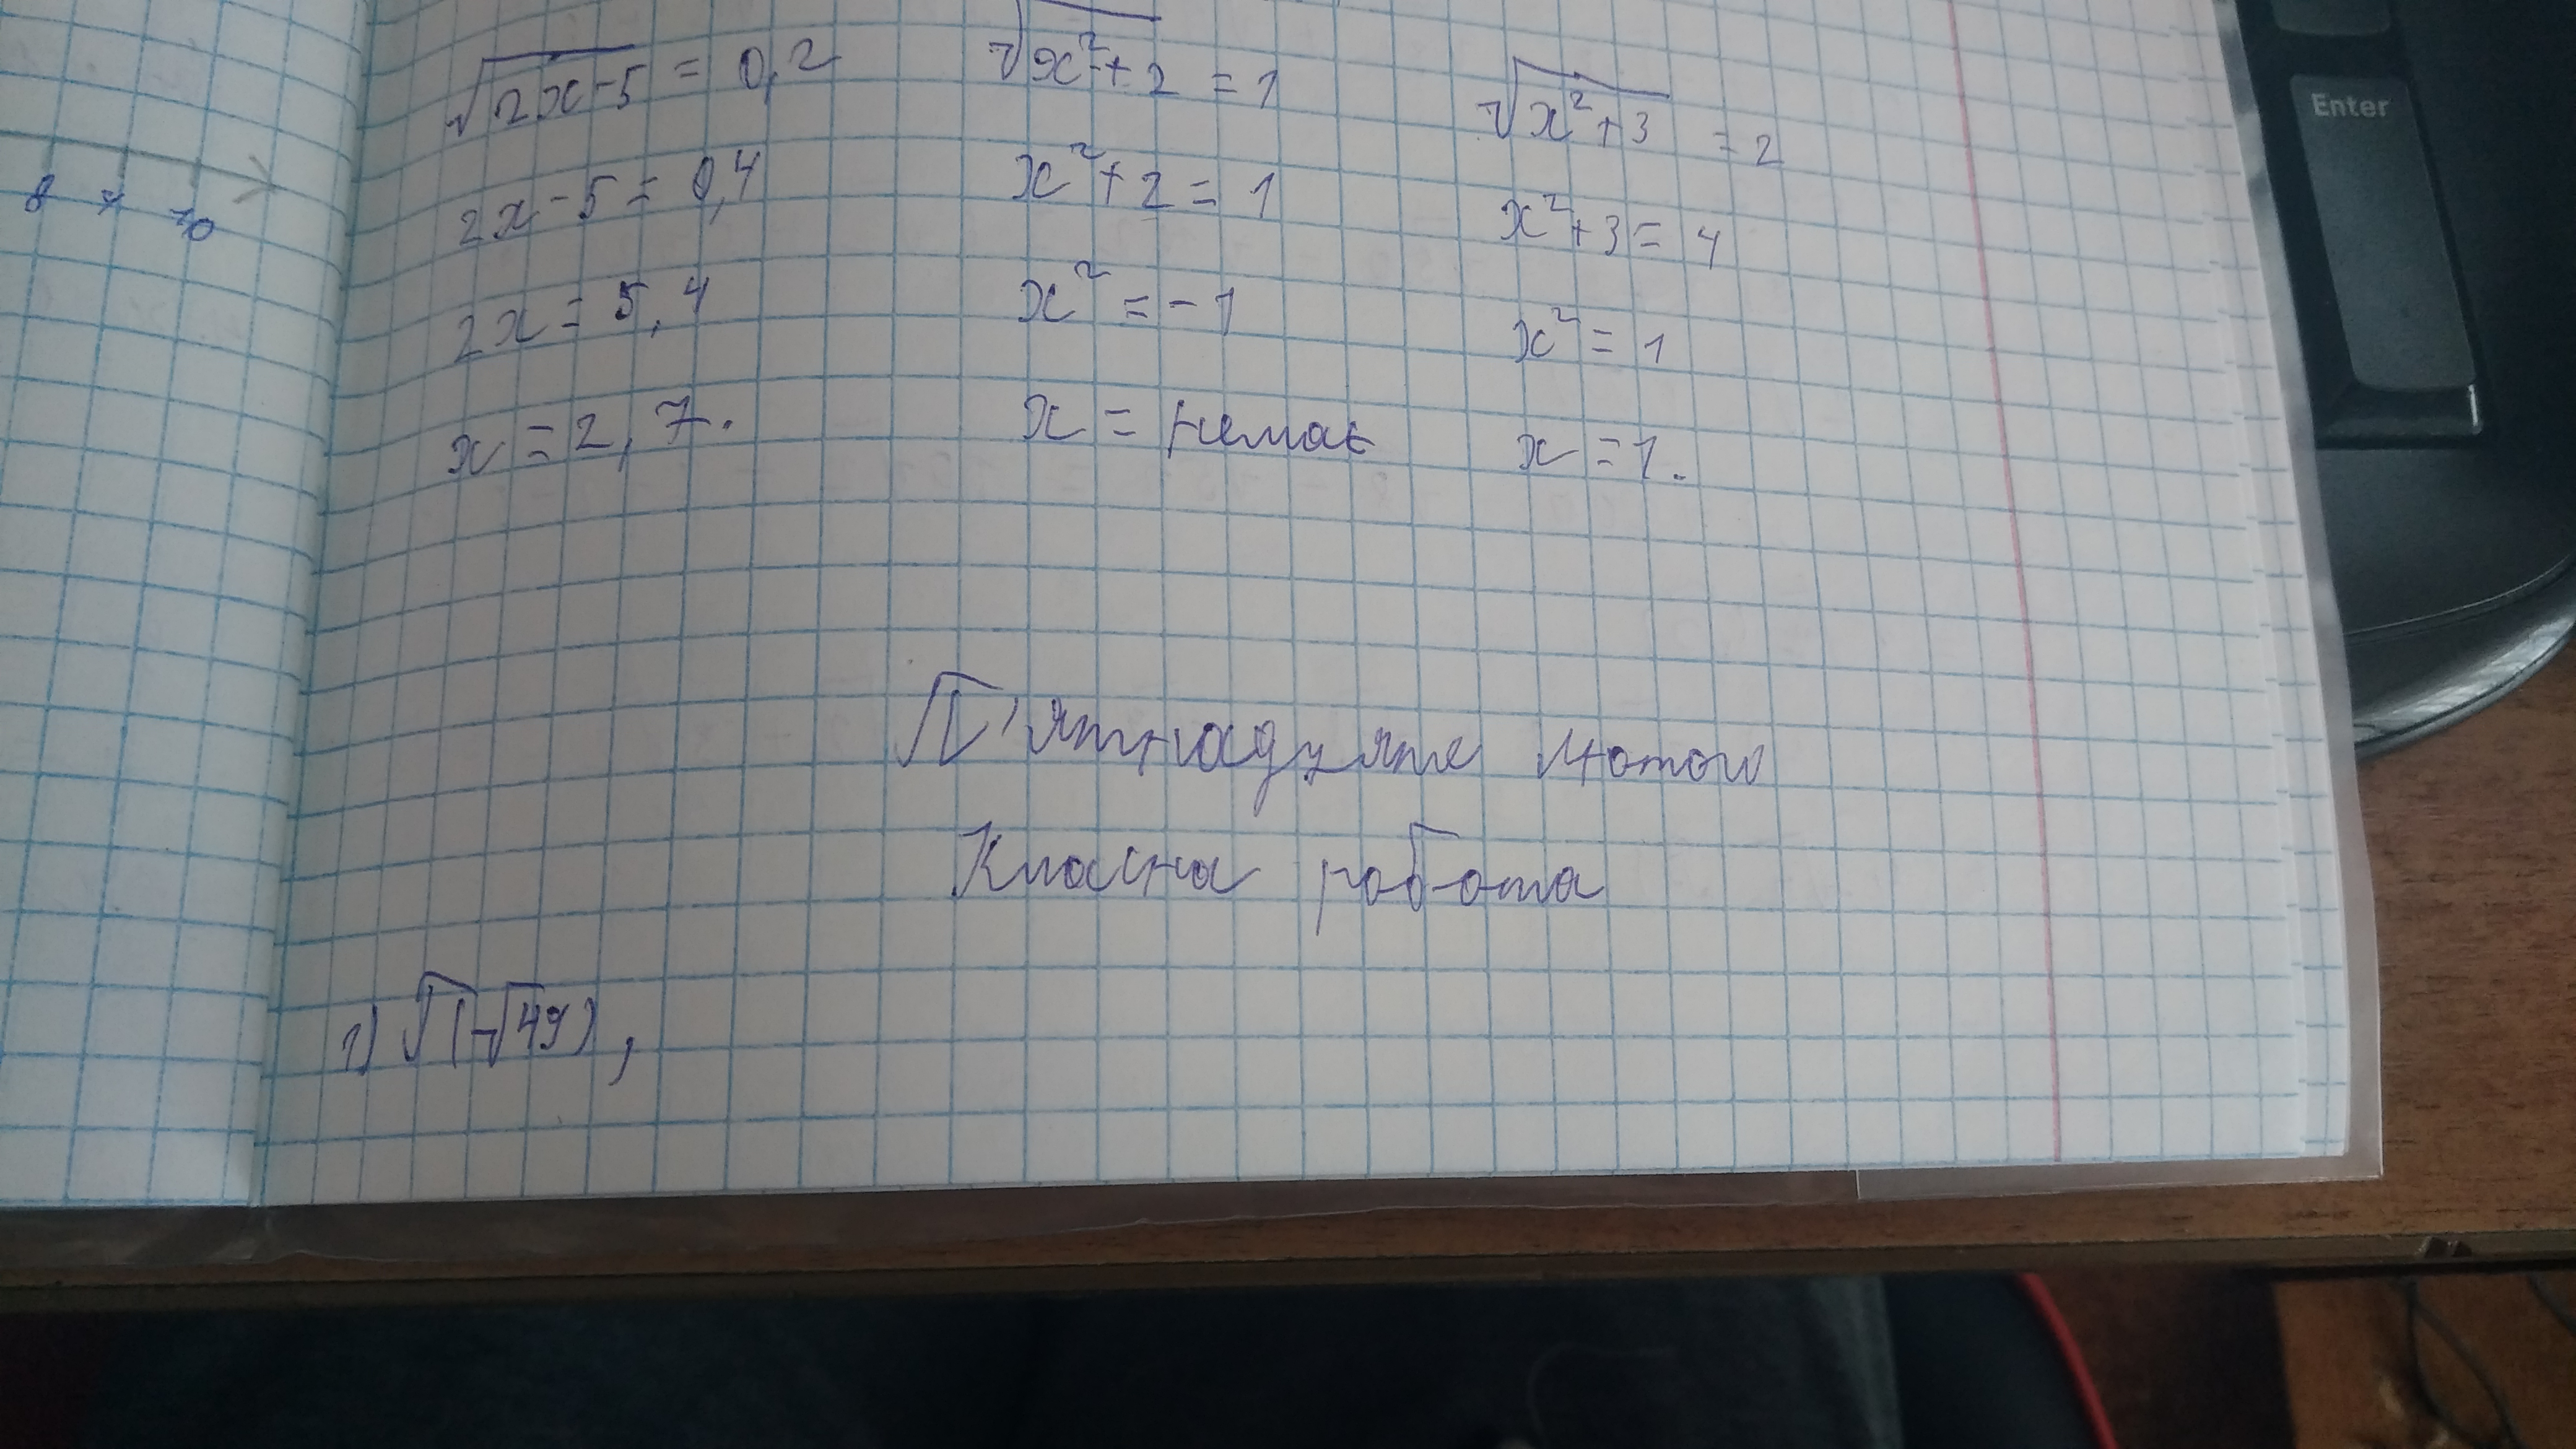 √(2x-5) = 0,2
2x-5 = 0,4
2x = 5,4
x = 2,7.
√(x²+2) = 1
x²+2 = 1
x² = -1
x = немає
√(x²+3) = 2
x²+3 = 4
x² = 1
x = 1.
П'ятнадцяте лютого
Класна робота
1) √(-√49),
Enter